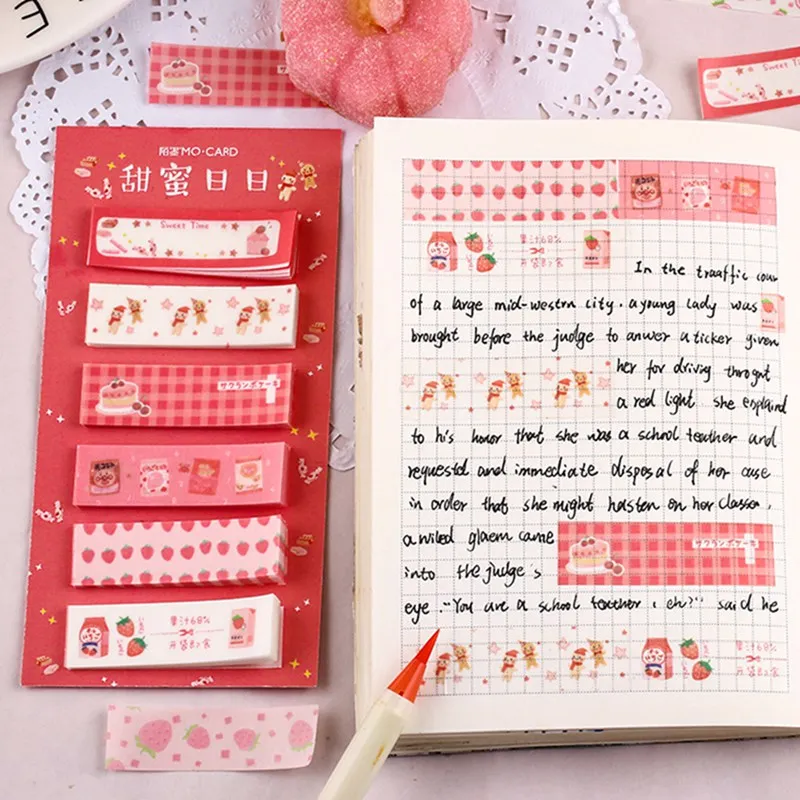 陌墨MO·CARD
甜蜜日日
Sweet Time
サクランボケーキ
果汁68%
开袋即食
Sweet Time
In the traaffic cour
of a large mid-westrn city. a young lady was
brought before the judge to anwer a ticker given
her for drivig throght
a red light. she explaind
to his honor that she was a school teather and
requestd and immediate disposal of her case
in order that she might hasten on her classea.
a wiled glaem came
サクランボケーキ
into the judge's
eye. "You are a school teather, eh?" said he
果汁68%